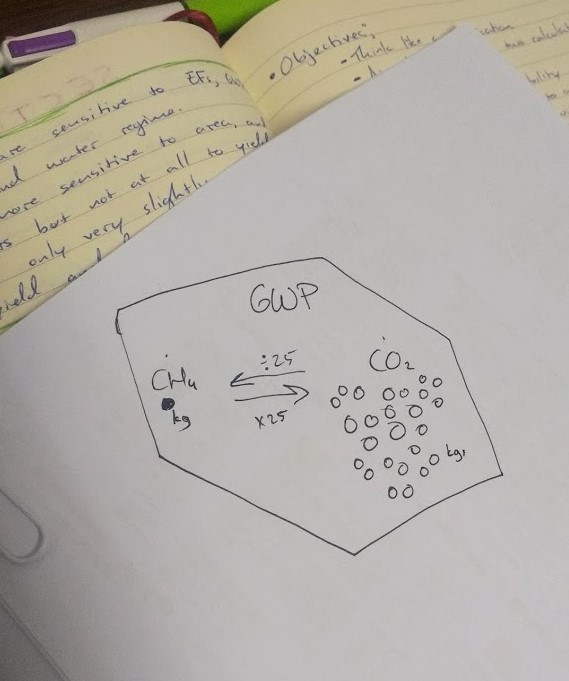 are sensitive to EFs,
and water regime.
more sensitive to area, and
but not at all to yield
only very slightly
yield and
• Objectives;
- Think like
GWP
÷25
CH4
CO2
kg
x25
kg,